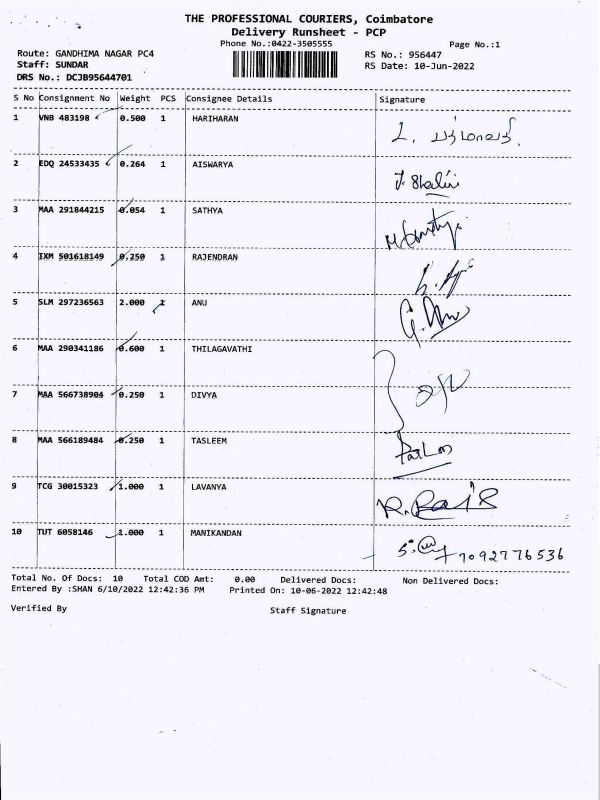 THE PROFESSIONAL COURIERS, Coimbatore
Delivery Runsheet - PCP
Phone No.:0422-3505555
Page No.:1
Route: GANDHIMA NAGAR PC4
RS No.: 956447
Staff: SUNDAR
RS Date: 10-Jun-2022
DRS No.: DCJB95644701
S No Consignment No Weight PCS Consignee Details Signature
1 VNB 483198 0.500 1 HARIHARAN
2 EDQ 24533435 0.264 1 AISWARYA J. Shalini
3 MAA 291844215 0.054 1 SATHYA
4 IXM 501618149 0.250 1 RAJENDRAN
5 SLM 297236563 2.000 1 ANU G. Anu
6 MAA 290341186 0.600 1 THILAGAVATHI
7 MAA 566738904 0.250 1 DIVYA
8 MAA 566189484 0.250 1 TASLEEM
9 TCG 30015323 1.000 1 LAVANYA
10 TUT 6058146 1.000 1 MANIKANDAN 7092776536
Total No. Of Docs: 10 Total COD Amt: 0.00 Delivered Docs: Non Delivered Docs:
Entered By :SHAN 6/10/2022 12:42:36 PM Printed On: 10-06-2022 12:42:48
Verified By Staff Signature